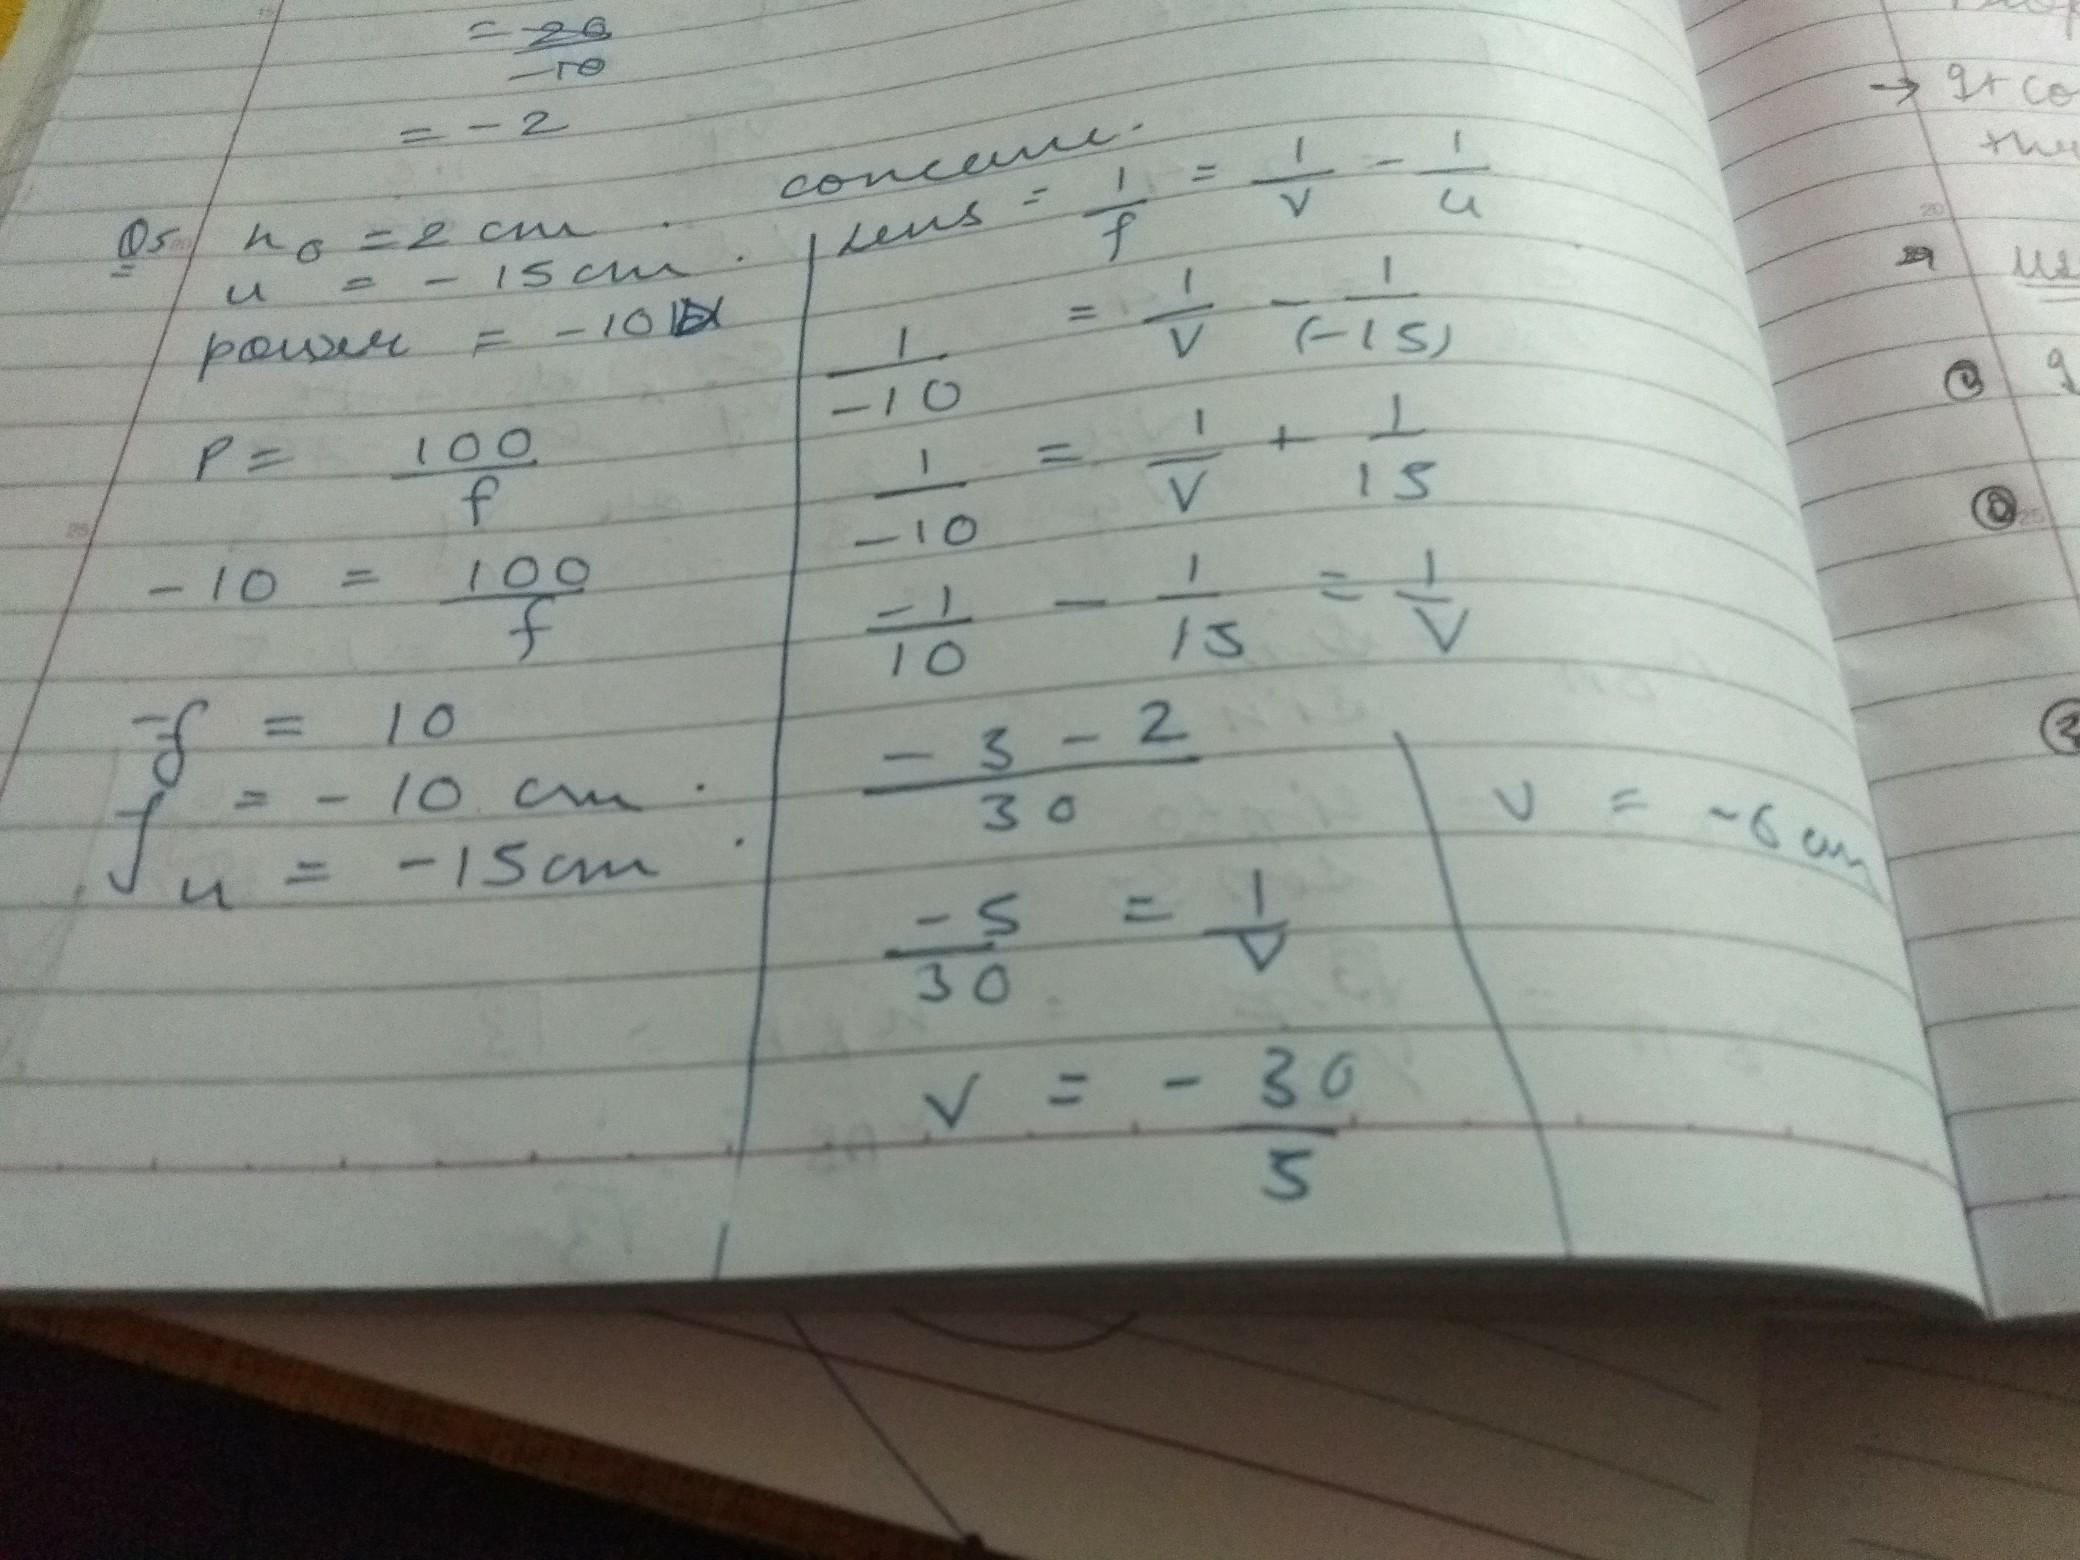 = 20
-10
= -2
Q5 ho = 2 cm.
u = -15 cm.
power = -10 D
P = 100
f
-10 = 100
f
-f = 10
f = -10 cm.
u = -15 cm.
concave.
Lens = 1/f = 1/v - 1/u
1/-10 = 1/v - 1/(-15)
1/-10 = 1/v + 1/15
-1/10 - 1/15 = 1/v
-3-2
30
-5/30 = 1/v
v = -30
5
v = -6 cm
→ It co
the
us
①
②